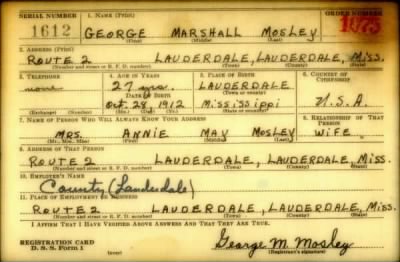 SERIAL NUMBER 1. NAME (Print) ORDER NUMBER
1612 GEORGE MARSHALL MOSLEY 1073
(First) (Middle) (Last)
2. ADDRESS (Print)
ROUTE 2 LAUDERDALE, LAUDERDALE, MISS.
(Number and street or R. F. D. number) (Town) (County) (State)
3. TELEPHONE 4. AGE IN YEARS 5. PLACE OF BIRTH 6. COUNTRY OF CITIZENSHIP
none 27 yrs. LAUDERDALE
DATE OF BIRTH (Town or county)
Oct. 28, 1912 Mississippi U.S.A.
(Exchange) (Number) (Mo.) (Day) (Yr.) (State or country)
7. NAME OF PERSON WHO WILL ALWAYS KNOW YOUR ADDRESS 8. RELATIONSHIP OF THAT PERSON
MRS. ANNIE MAY MOSLEY WIFE
(Mr., Mrs., Miss) (First) (Middle) (Last)
9. ADDRESS OF THAT PERSON
ROUTE 2 LAUDERDALE, LAUDERDALE, MISS.
(Number and street or R. F. D. number) (Town) (County) (State)
10. EMPLOYER'S NAME
County (Lauderdale)
11. PLACE OF EMPLOYMENT OR BUSINESS
ROUTE 2 LAUDERDALE, LAUDERDALE, MISS.
(Number and street or R. F. D. number) (Town) (County) (State)
I AFFIRM THAT I HAVE VERIFIED ABOVE ANSWERS AND THAT THEY ARE TRUE.
REGISTRATION CARD George M. Mosley
D. S. S. Form 1 (Registrant's signature)